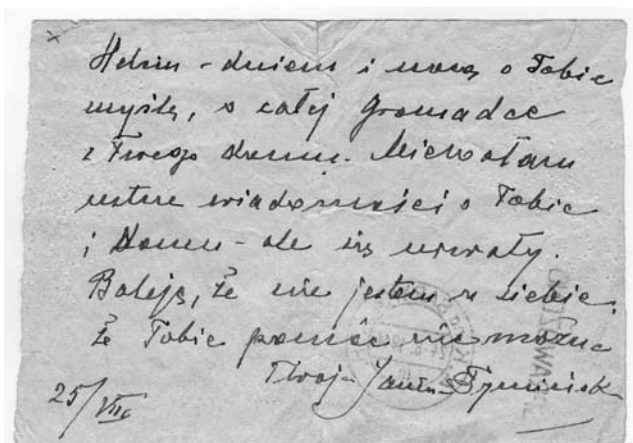 Helciu - dniem i nocą o Tobie
myślę, o całej Gromadce
z Twego domu. Miewałam
ustne wiadomości o Tobie
i domu - ale się urwały.
Boleję, że nie jestem u siebie,
że Tobie pomóc nie można
Twoja Janina
25/VIII